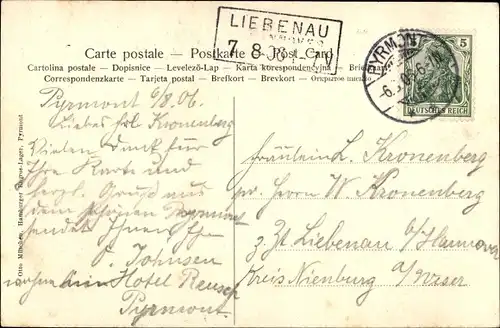 LIEBENAU
HANNOVER
7 8. 06 1-
PYRMONT
6.8.06. 6-7N.
5
DEUTSCHES REICH
Carte postale — Postkarte — Post Card
Cartolina postale - Dopisnice - Levelező-Lap - Karta korespondencyjna -
Correspondenzkarte - Tarjeta postal - Brefkort - Brevkort - Открытое письмо
Pyrmont 6/8.06.
Liebes Frl. Kronenberg
Vielen Dank für
Ihre Karte und
herzl. Gruß aus
dem schönen Pyrmont
sendet Ihnen Ihr
O. Johnsen
wohne im Hotel
Pyrmont
Fräulein L. Kronenberg
pr. Herrn W. Kronenberg
z. Zt. Liebenau b/Hannover
Kreis Nienburg a/Weser
Otto München, Hamburger Engros-Lager, Pyrmont